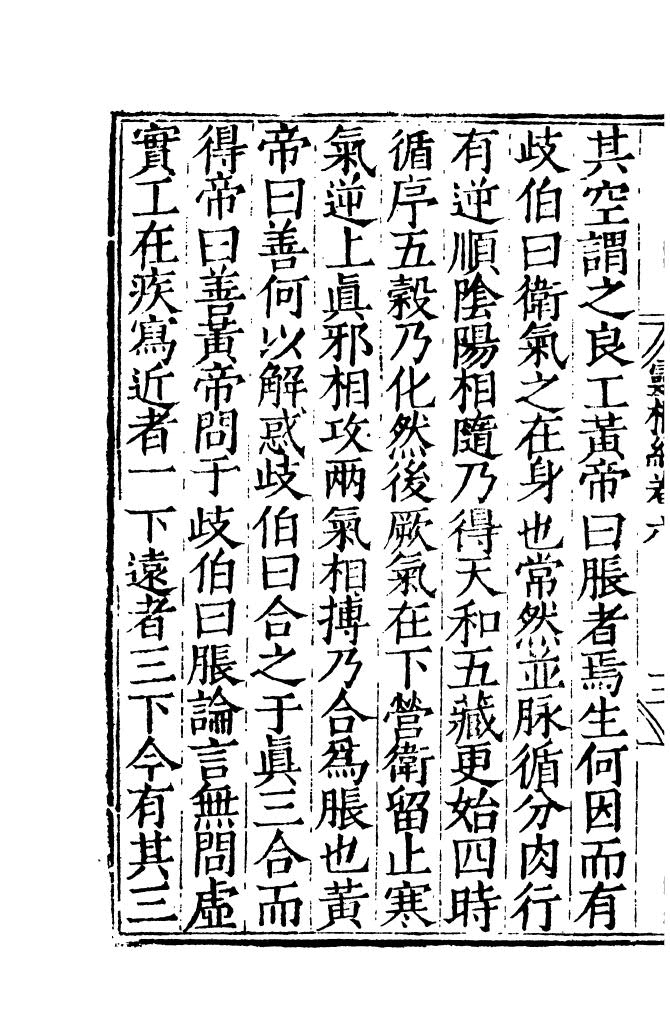 其空謂之良工黃帝曰脹者焉生何因而有
歧伯曰衛氣之在身也常然並脉循分肉行
有逆順陰陽相隨乃得天和五藏更始四時
循序五穀乃化然後厥氣在下營衛留止寒
氣逆上眞邪相攻兩氣相搏乃合爲脹也黃
帝曰善何以解惑歧伯曰合之于眞三合而
得帝曰善黃帝問于歧伯曰脹論言無問虛
實工在疾寫近者一下遠者三下今有其三